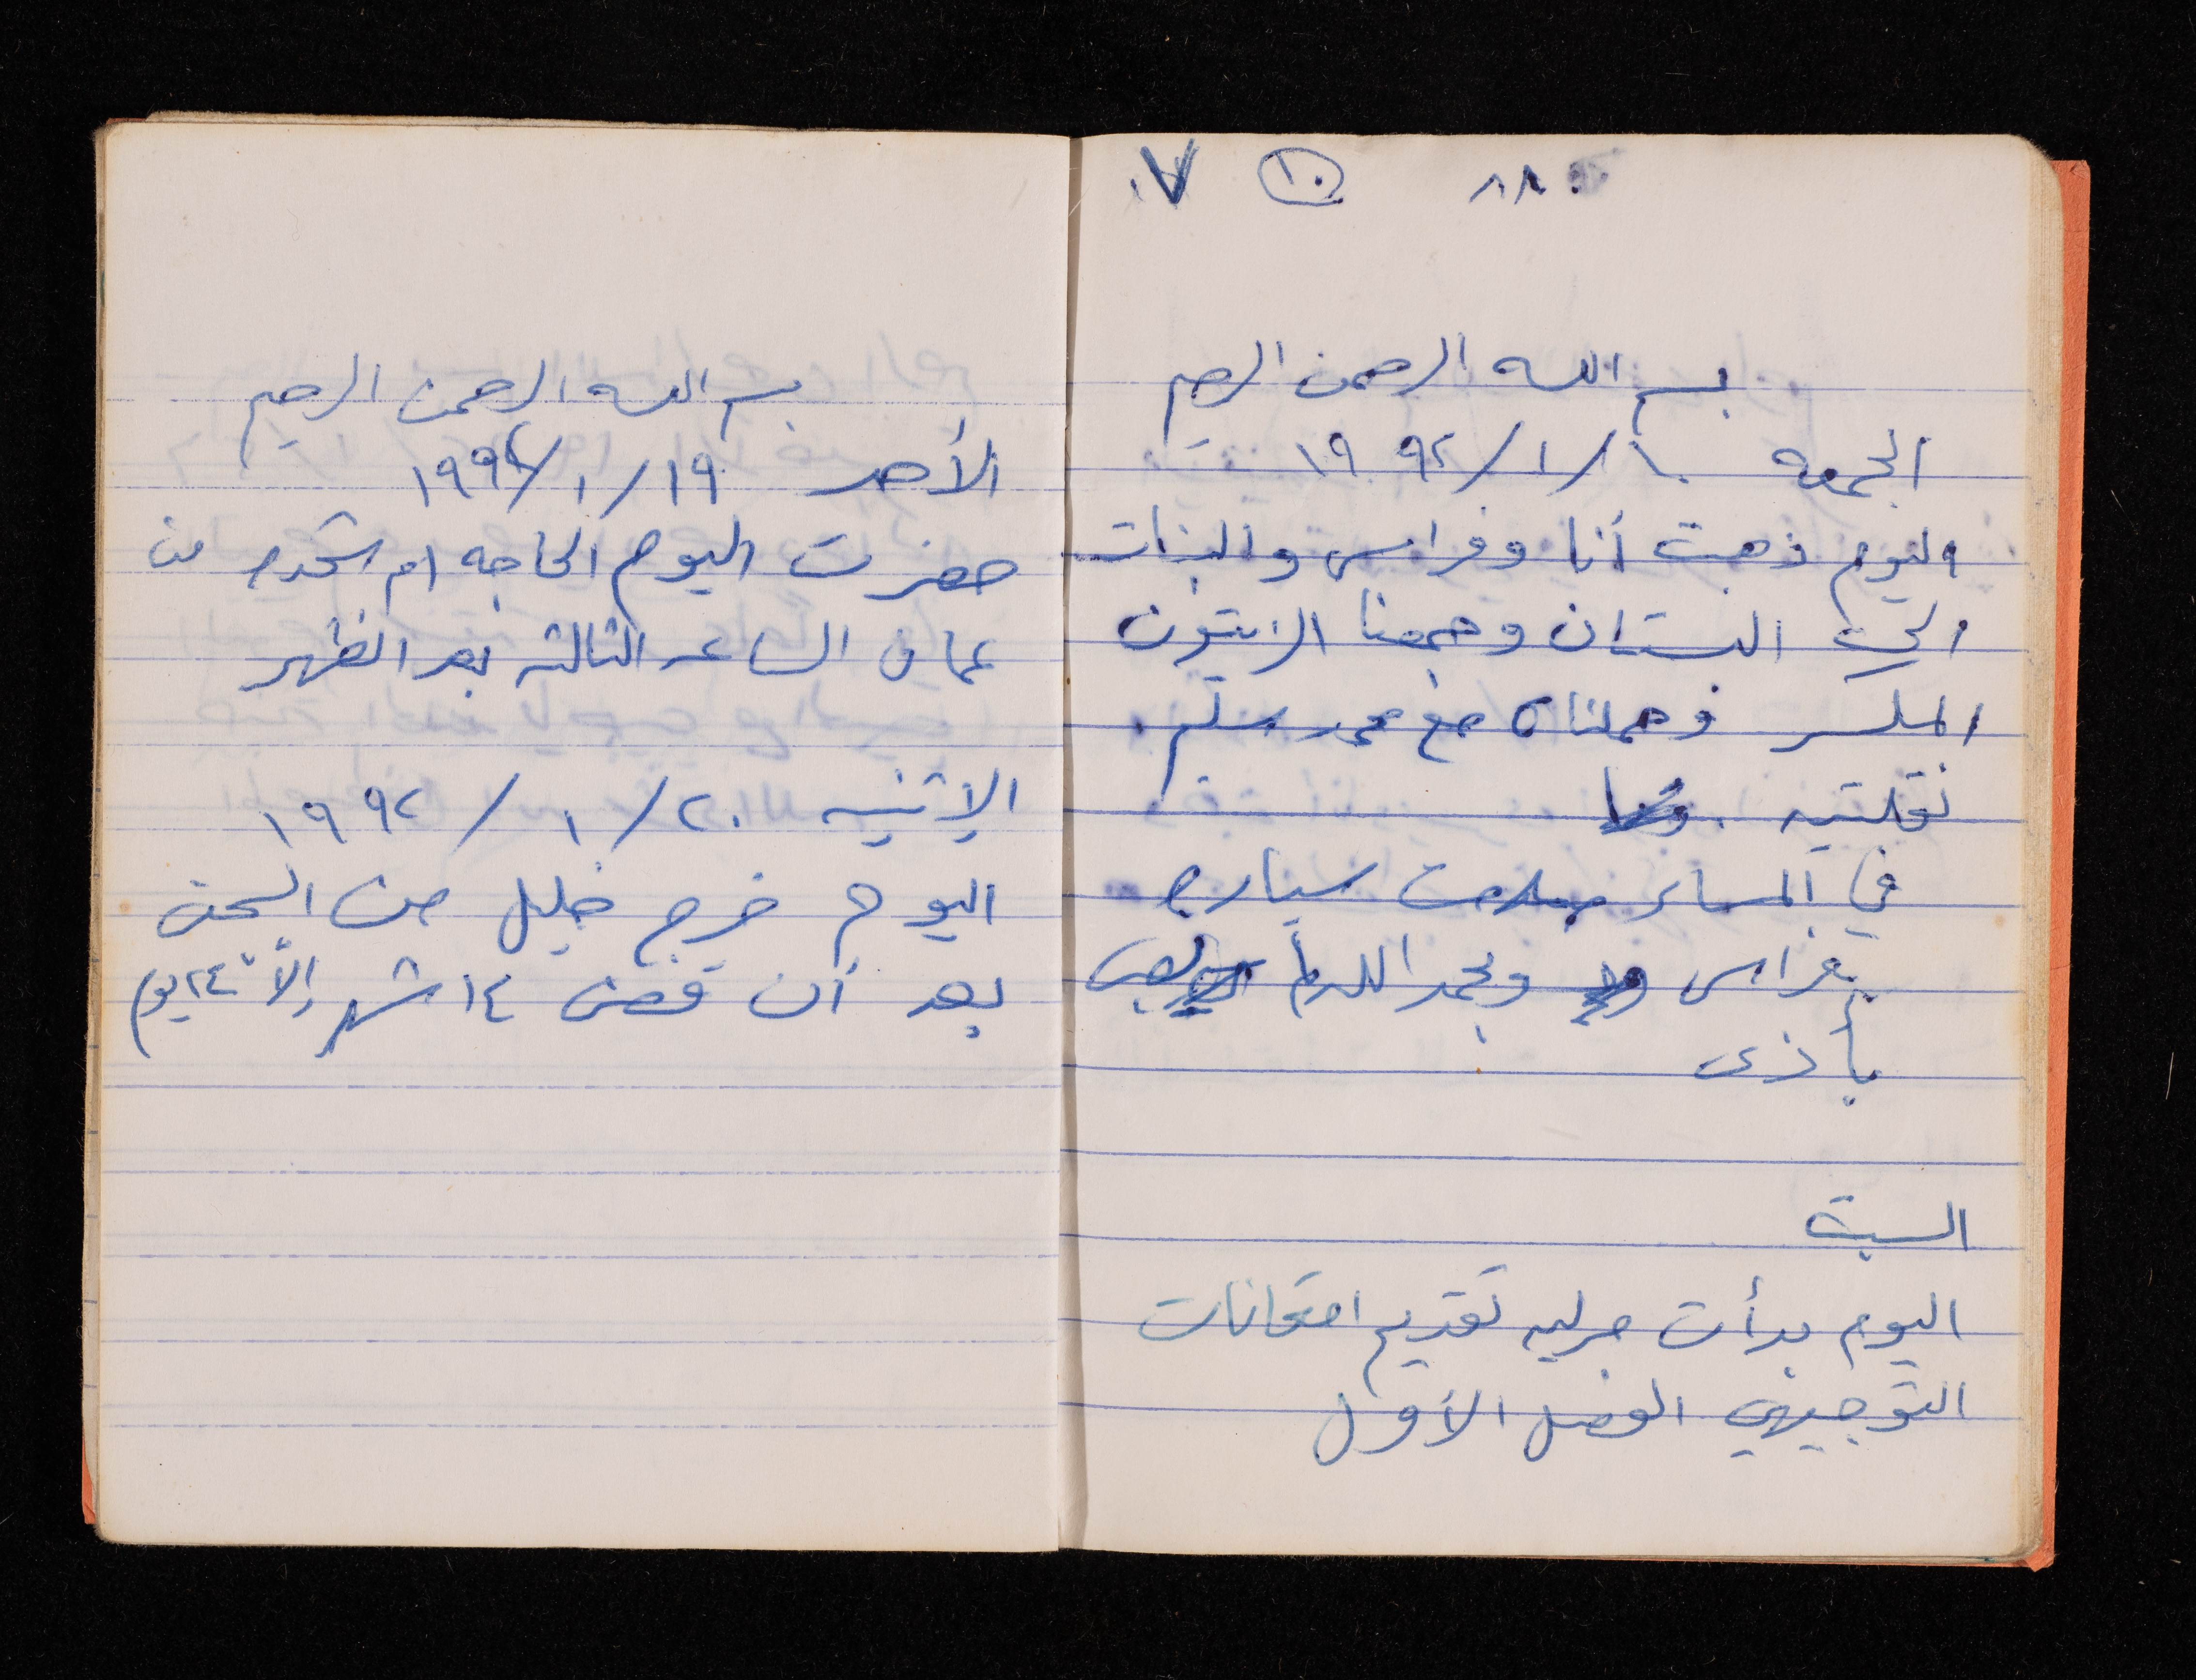 ٨٨٠ ١٠ ٧٠
بسم الله الرحمن الرحيم
الجمعه ١٠/١/١٩٩٢
اليوم ذهبت أنا وفراس والبنات
الى البستان وجمعنا الزيتون
المكسر وحملناه مع محمد سلم
نقلتيه.
في المساء صدمت سياره
فراس وبحمد الله لم يصب
بأذى
السبت
اليوم بدأت تقديم امتحانات
التوجيهي الفصل الأول
بسم الله الرحمن الرحيم
الأحد ١٩/١/١٩٩٢
حضرت اليوم الحاجه ام من
عمان الساعه الثالثه بعد الظهر
الإثنين ٢٠/١/١٩٩٢
اليوم خرج خليل من السجن
بعد أن قضى ١٤ شهر إلاّ ٢٤ يوم